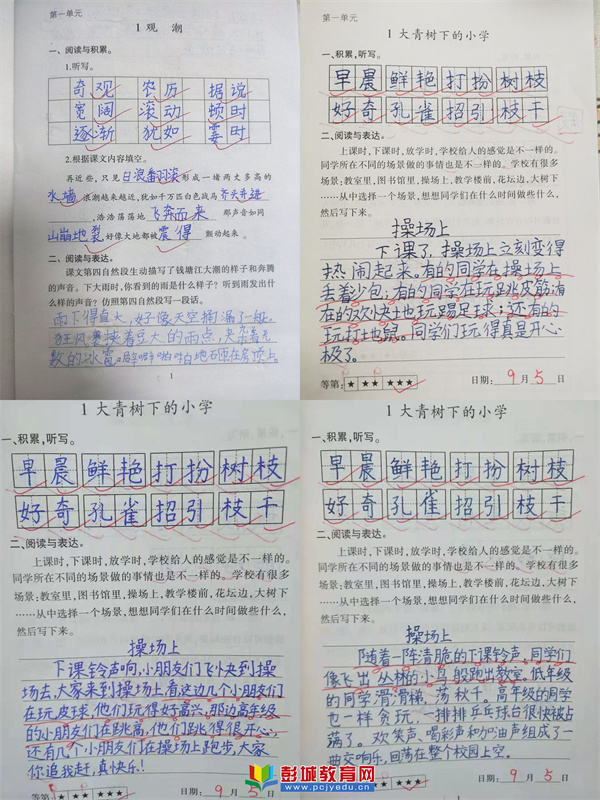 第一单元
1 观 潮
一、阅读与积累。
1.听写。
奇观 农历 据说
宽阔 滚动 顿时
逐渐 犹如 霎时
2.根据课文内容填空。
再近些,只见白浪翻滚形成一堵两丈多高的
水墙 浪潮越来越近,犹如千万匹白色战马齐头并进
,浩浩荡荡地飞奔而来 那声音如同
山崩地裂 好像大地都被震得 颤动起来。
二、阅读与表达。
课文第四自然段生动描写了钱塘江大潮的样子和奔腾
的声音。下大雨时,你看到的雨是什么样子?听到雨发出什
么样的声音?仿照第四自然段写一段话。
雨下得真大,好像天空捅漏了一般。
狂风裹挟着豆大的雨点,夹杂着无
数的冰雹,噼噼啪啪地砸在房顶上。
1
第一单元
1 大青树下的小学
一、积累,听写。
早晨 鲜艳 打扮 树枝
好奇 孔雀 招引 枝干
二、阅读与表达。
上课时,下课时,放学时,学校给人的感觉是不一样的。
同学所在不同的场景做的事情也是不一样的。学校有很多
场景:教室里,图书馆里,操场上,教学楼前,花坛边,大树下
……从中选择一个场景,想想同学们在什么时间做些什么,
然后写下来。
操场上
下课了,操场上立刻变得
热闹起来。有的同学在操场上
丢着沙包;有的同学在玩跳皮筋;有
在的欢快地玩踢足球;还有的
玩打地鼠。同学们玩得真是开心
极了。
等第: ★ ★★ ★★★ 日期: 9 月 5 日
1 大青树下的小学
一、积累,听写。
早晨 鲜艳 打扮 树枝
好奇 孔雀 招引 枝干
二、阅读与表达。
上课时,下课时,放学时,学校给人的感觉是不一样的。
同学所在不同的场景做的事情也是不一样的。学校有很多
场景:教室里,图书馆里,操场上,教学楼前,花坛边,大树下
……从中选择一个场景,想想同学们在什么时间做些什么,
然后写下来。
操场上
下课铃声响,小朋友们飞快到操
场去,大家来到操场上看,这边几个小朋友们
在玩皮球,他们玩得好高兴,那边高年级
的小朋友们在跳高,他们跳得很开心,
还有几个小朋友们在操场上跑步,大家
你追我赶,真快乐!
等第: ★ ★★ ★★★ 日期: 9 月 5 日
1 大青树下的小学
一、积累,听写。
早晨 鲜艳 打扮 树枝
好奇 孔雀 招引 枝干
二、阅读与表达。
上课时,下课时,放学时,学校给人的感觉是不一样的。
同学所在不同的场景做的事情也是不一样的。学校有很多
场景:教室里,图书馆里,操场上,教学楼前,花坛边,大树下
……从中选择一个场景,想想同学们在什么时间做些什么,
然后写下来。
操场上
随着一阵清脆的下课铃声,同学们
像飞出丛林的小鸟般跑出教室。低年级
的同学滑滑梯,荡秋千。高年级的同学
也一样贪玩,一排排乒乓球台很快被占
满了。欢笑声、喝彩声和加油声组成了一
曲交响乐,回荡在整个校园上空。
9 月 5 日
彭城教育网
www.pcjyedu.cn